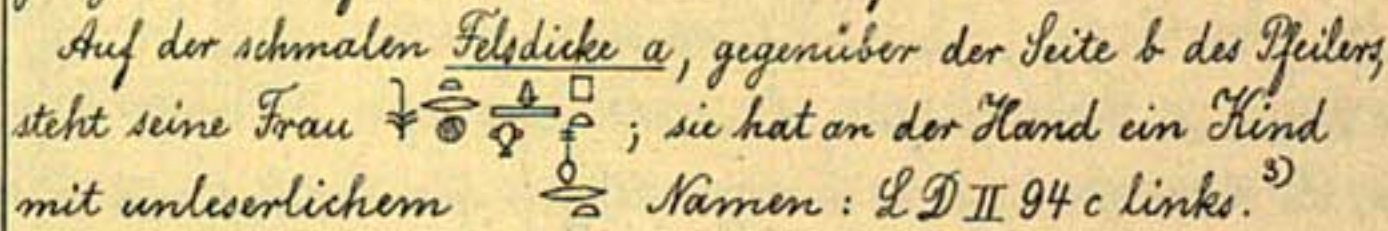 Auf der schmalen Felsdicke a, gegenüber der Seite b des Pfeilers,
steht seine Frau 𓇓𓏏𓂋𓐍 ; sie hat an der Hand ein Kind
mit unleserlichem Namen : LD II 94 c links. 3)